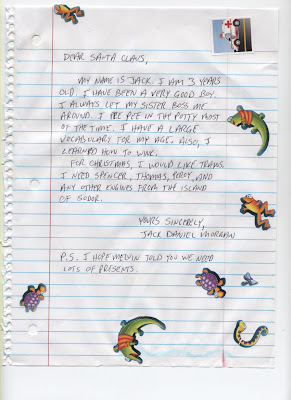 DEAR SANTA CLAUS,
MY NAME IS JACK. I AM 3 YEARS
OLD. I HAVE BEEN A VERY GOOD BOY.
I ALWAYS LET MY SISTER BOSS ME
AROUND. I PEE IN THE POTTY MOST
OF THE TIME. I HAVE A LARGE
VOCABULARY FOR MY AGE. ALSO, I
LEARNED HOW TO WINK.
FOR CHRISTMAS, I WOULD LIKE TRAINS.
I NEED SPENCER, THOMAS, PERCY, AND
ANY OTHER ENGINES FROM THE ISLAND
OF SODOR.
YOURS SINCERELY,
JACK DANIEL MORGAN
P.S. I HOPE MELVIN TOLD YOU WE NEED
LOTS OF PRESENTS.